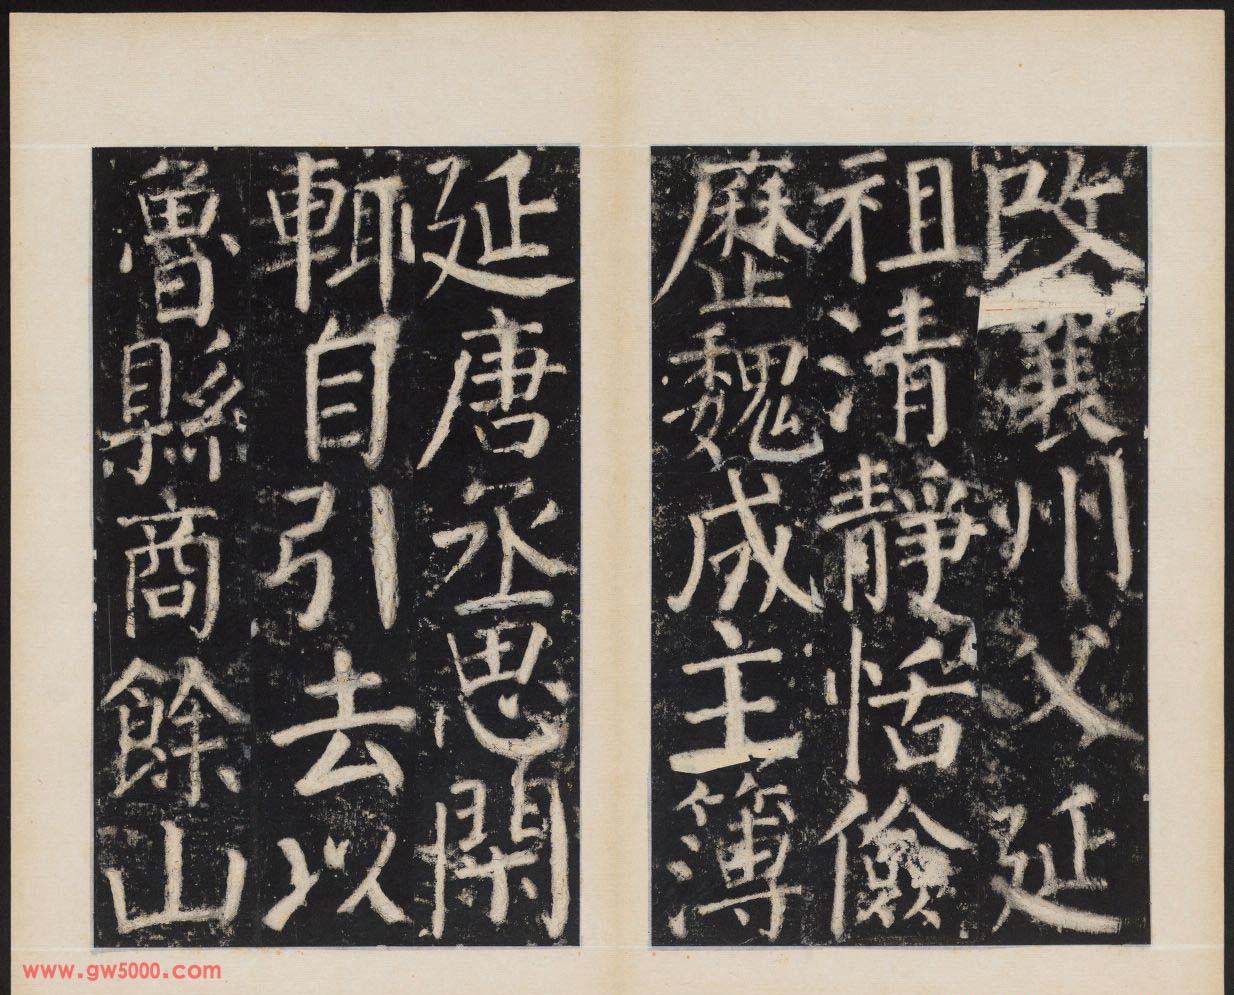 改襄川父延
祖清靜恬儉
歷魏成主簿
延唐丞思閑
輒自引去以
魯縣商餘山
www.gw5000.com